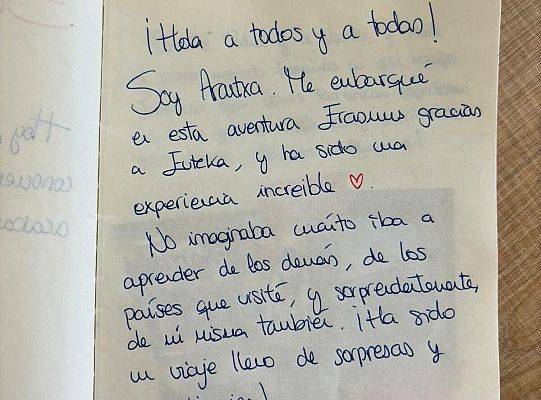 ¡Hola a todos y a todas!
Soy Arantxa. Me embarqué
en esta aventura Erasmus gracias
a Euteka, y ha sido una
experiencia increíble ♡.
No imaginaba cuánto iba a
aprender de los demás, de los
países que visité, y sorprendentemente,
de mí misma también. ¡Ha sido
un viaje lleno de sorpresas y